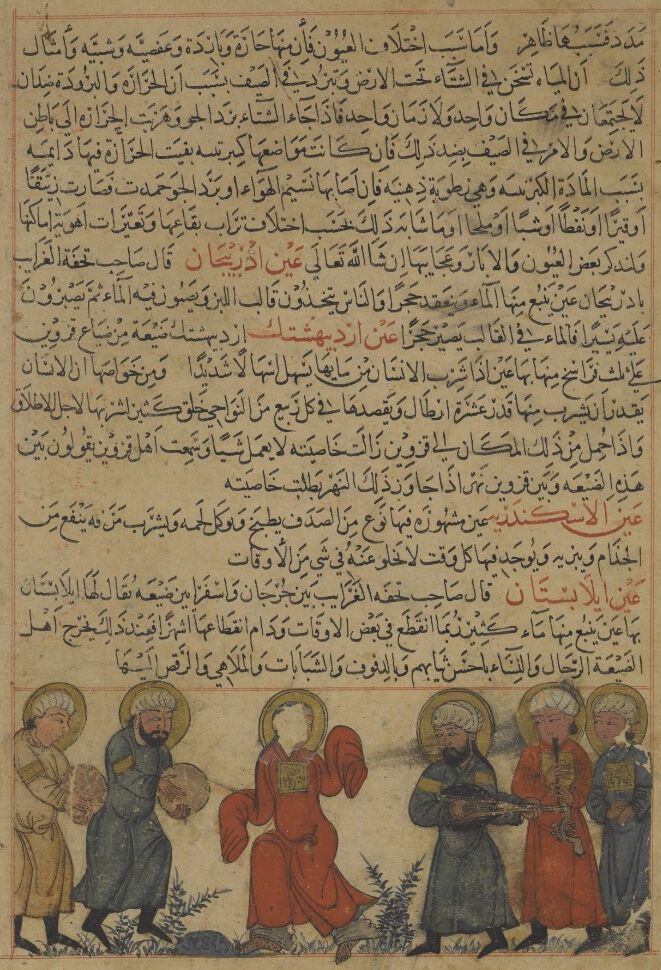 مدد فسببها ظاهر واما سبب اختلاف العيون فان منها حارة وباردة وعفصيه وشبيه وأمثال
ذلك ان المياه تسخن في الشتاء تحت الارض وتبرد في الصيف بسبب ان الحرارة والبرودة ضدان
لا يجتمعان في مكان واحد ولا زمان واحد فاذا جاء الشتاء برد الجو وهربت الحرارة الى باطن
الارض والامر في الصيف بضد ذلك فان كانت مواضعها كبريتيه بقيت الحرارة فيها دايمه
بسبب المادة الكبريتيه وهي رطوبة ذهنيه فان اصابها نسيم الهواء او برد الجو جمدت فصارت زيبقا
او قيرا او نفطا او شبا او ملحا او ما شابه ذلك بحسب اختلاف تراب بقاعها وتغيرات اهوية اماكنها
ولنذكر بعض العيون والابار وعجايبها ان شا الله تعالى عين اذربيجان قال صاحب تحفة الغرايب
باذربيجان عين ينبع منها الماء وينعقد حجرا والناس يتخذون قالب اللبن ويصبون فيه الماء ثم يصبرون
عليه يسيرا فالماء في القالب يصير حجرا عين ارديهشتك ارديهشتك ضيعة من ضياع قزوين
على ثلث فراسخ منها بها عين اذا شرب الانسان من مايها يسهل اسهالا شديدا ومن خواصها ان الانسان
يقدر ان يشرب منها قدر عشرة ارطال ويقصدها في كل ربيع من النواحي خلق كثير لشربها لاجل الاطلاق
واذا حمل من ذلك المكان الى قزوين زالت خاصيته لا يعمل شيا وسمعت اهل قزوين يقولون بين
هذه الضيعه وبين قزوين نهر اذا جاوز ذلك النهر بطلت خاصيته
عين الاسكندريه عين مشهورة فيها نوع من الصدف يطبخ ويوكل لحمه ويشرب مرقه ينفع من
الجذام ويبريه ويوجد فيها كل وقت لا يخلو عنه في شي من الاوقات
عين ايلابستان قال صاحب تحفه الغرايب بين جرجان واسفراين ضيعه يقال لها ايلابستان
بها عين ينبع منها ماء كثير ربما انقطع في بعض الاوقات ودام انقطاعها اشهرا فعند ذلك يخرج اهل
الضيعة الرجال والنساء باحسن ثيابهم وبالدفوف والشبابات والملاهي والرقص اليها